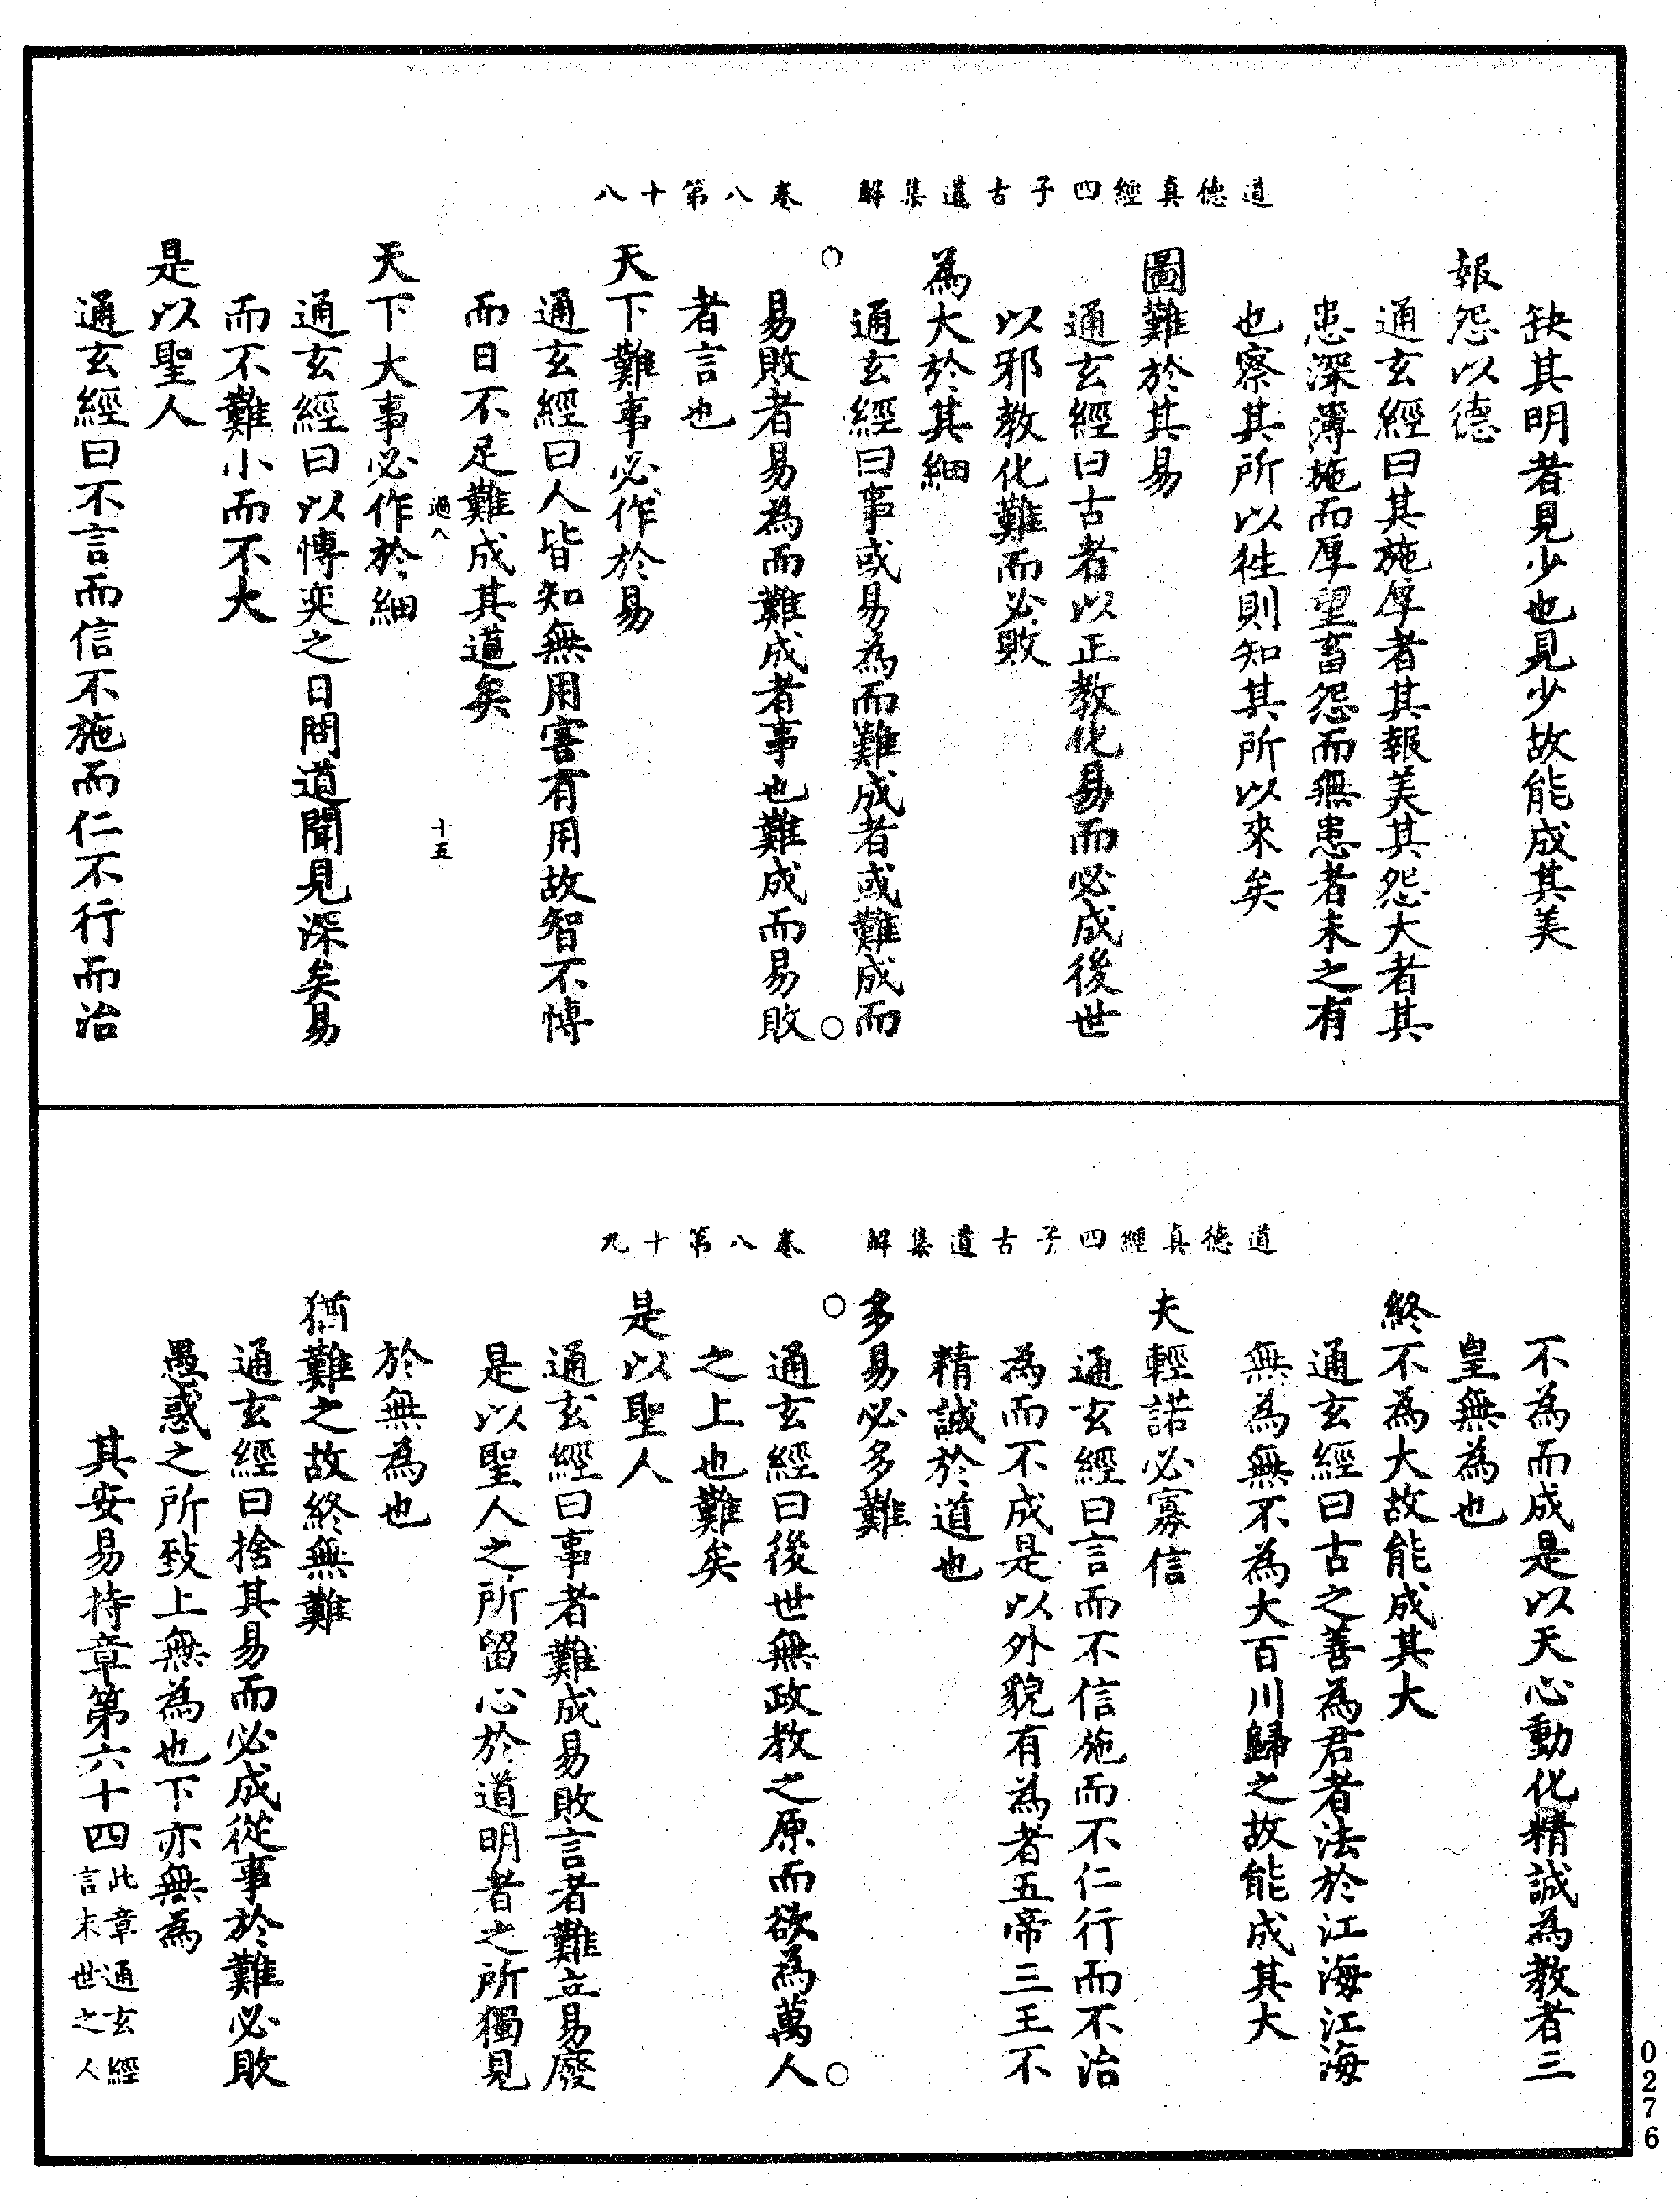 道德真經四子古道集解　卷八第十八
缺其明者見少也見少故能成其美
報怨以德
通玄經曰其施厚者其報美其怨大者其
患深薄施而厚望畜怨而無患者未之有
也察其所以徃則知其所以來矣
圖難於其易
通玄經曰古者以正教化易而必成後世
以邪教化難而必敗
為大於其細
通玄經曰事或易為而難成者或難成而
易敗者易為而難成者事也難成而易敗
者言也
天下難事必作於易
通玄經曰人皆知無用害有用故智不愽
而日不足難成其道矣
過八　十五
天下大事必作於細
通玄經曰以愽奕之日問道聞見深矣易
而不難小而不大
是以聖人
通玄經曰不言而信不施而仁不行而治
道德真經四子古道集解　卷八第十九
不為而成是以天心動化精誠為教者三
皇無為也
終不為大故能成其大
通玄經曰古之善為君者法於江海江海
無為無不為大百川歸之故能成其大
夫輕諾必寡信
通玄經曰言而不信施而不仁行而不治
為而不成是以外貌有為者五帝三王不
精誠於道也
多易必多難
通玄經曰後世無政教之原而欲為萬人
之上也難矣
是以聖人
通玄經曰事者難成易敗言者難立易廢
是以聖人之所留心於道明者之所獨見
於無為也
猶難之故終無難
通玄經曰捨其易而必成從事於難必敗
愚惑之所致上無為也下亦無為
其安易持章第六十四此章通玄經言末世之人
0276